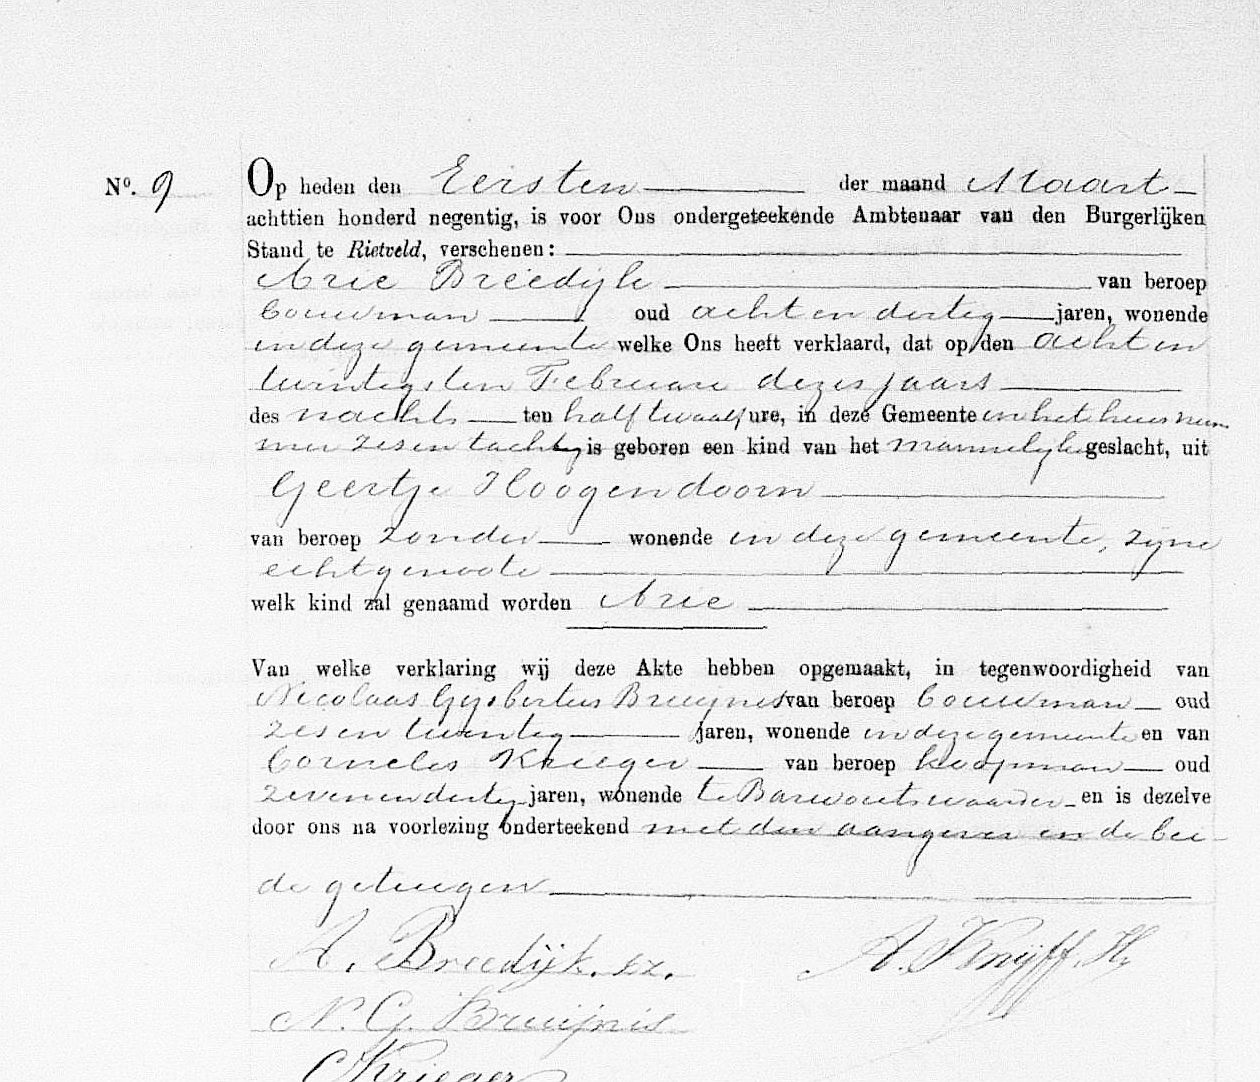 No. 9 Op heden den Eersten der maand Maart
achttien honderd negentig, is voor Ons ondergeteekende Ambtenaar van den Burgerlijken
Stand te Rietveld, verschenen:
Arie Breedijk van beroep
bouwman oud acht en dertig jaren, wonende
in deze gemeente welke Ons heeft verklaard, dat op den acht en
twintigsten Februari dezes jaars
des nachts ten half twaalf ure, in deze Gemeente in het huis num
mer zes en tachtig is geboren een kind van het mannelijk geslacht, uit
Geertje Hoogendoorn
van beroep zonder wonende in deze gemeente, zijne
echtgenoote
welk kind zal genaamd worden Arie
Van welke verklaring wij deze Akte hebben opgemaakt, in tegenwoordigheid van
Nicolaas Gijsbertus Bruijnis van beroep bouwman oud
zes en twintig jaren, wonende in deze gemeente en van
Cornelis Krieger van beroep koopman oud
zeven en dertig jaren, wonende te Barwoutswaarder en is dezelve
door ons na voorlezing onderteekend met den aangever en de bei
de getuigen
A. Breedijk. Az. A. Knijff. H.
N. G. Bruijnis
C Krieger